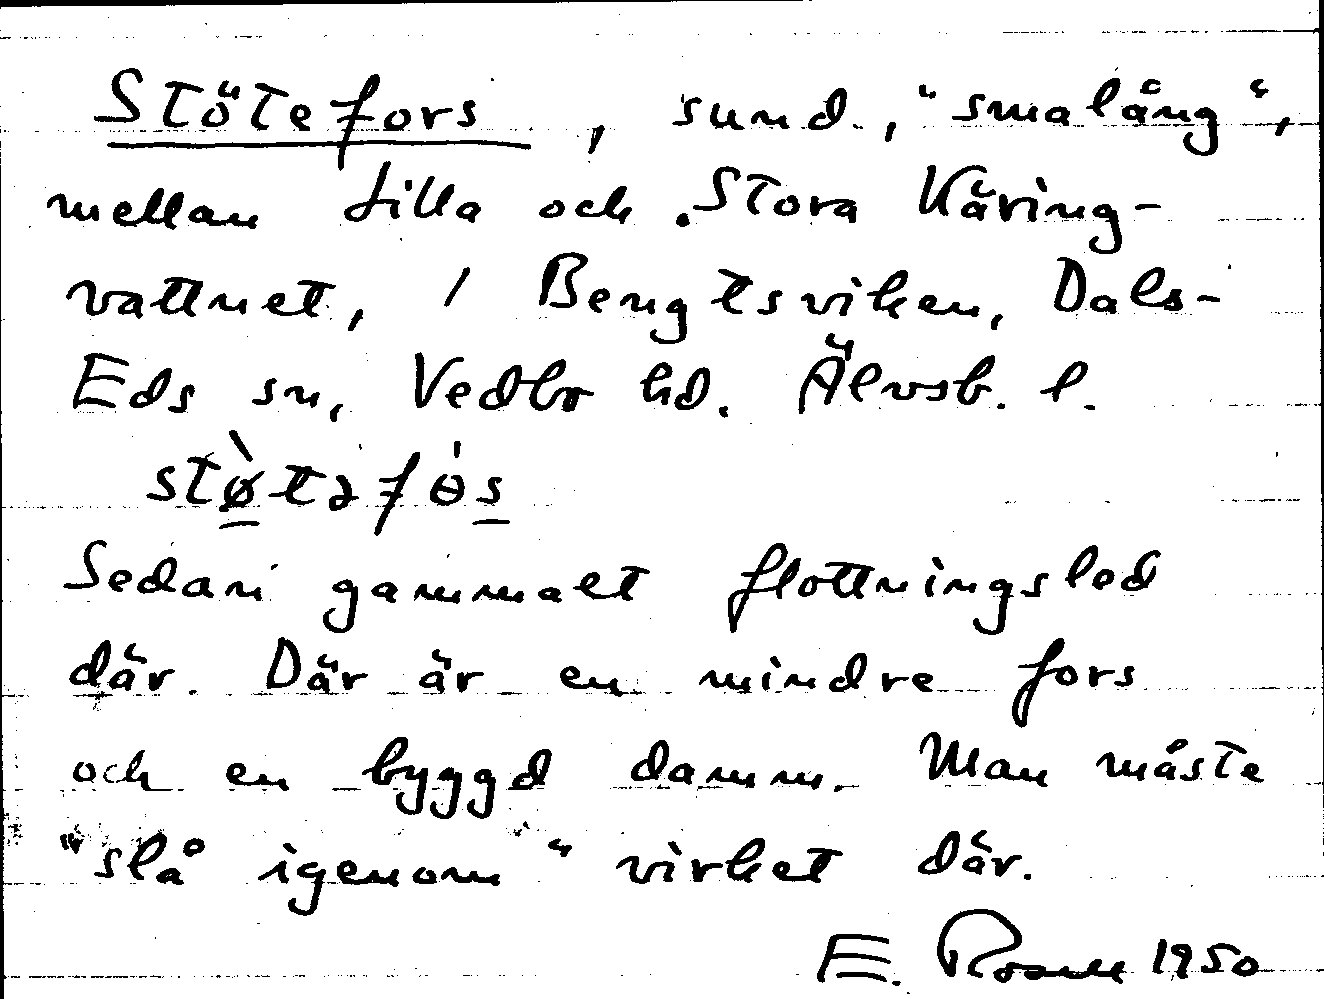 Stötefors, sund, "smalång",
mellan Lilla och Stora Käring-
vattnet, / Bengtsviken, Dals-
Eds sn, Vedbo hd. Älvsb. l.
stø̀təfɵ́s
Sedan gammalt flottningsled
där. Där är en mindre fors
och en byggd damm. Man måste
"slå igenom" virket där.
E. 1950